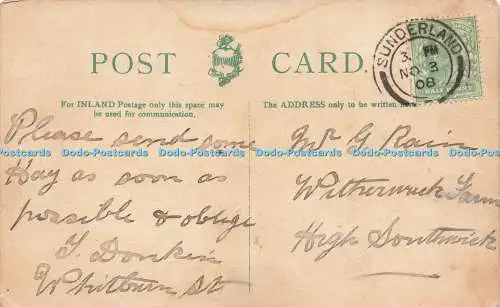 POST CARD.
SUNDERLAND
3. PM
NO 3
08
HALF PENNY
For INLAND Postage only this space may
be used for communication.
The ADDRESS only to be written
Please send some
Hay as soon as
possible & oblige
T. Donkin
Whitburn St
Mr G Rain
Witherwack Farm
High Southwick
Dodo-Postcards Dodo-Postcards Dodo-Postcards Dodo-Postcards Dodo-Postcards